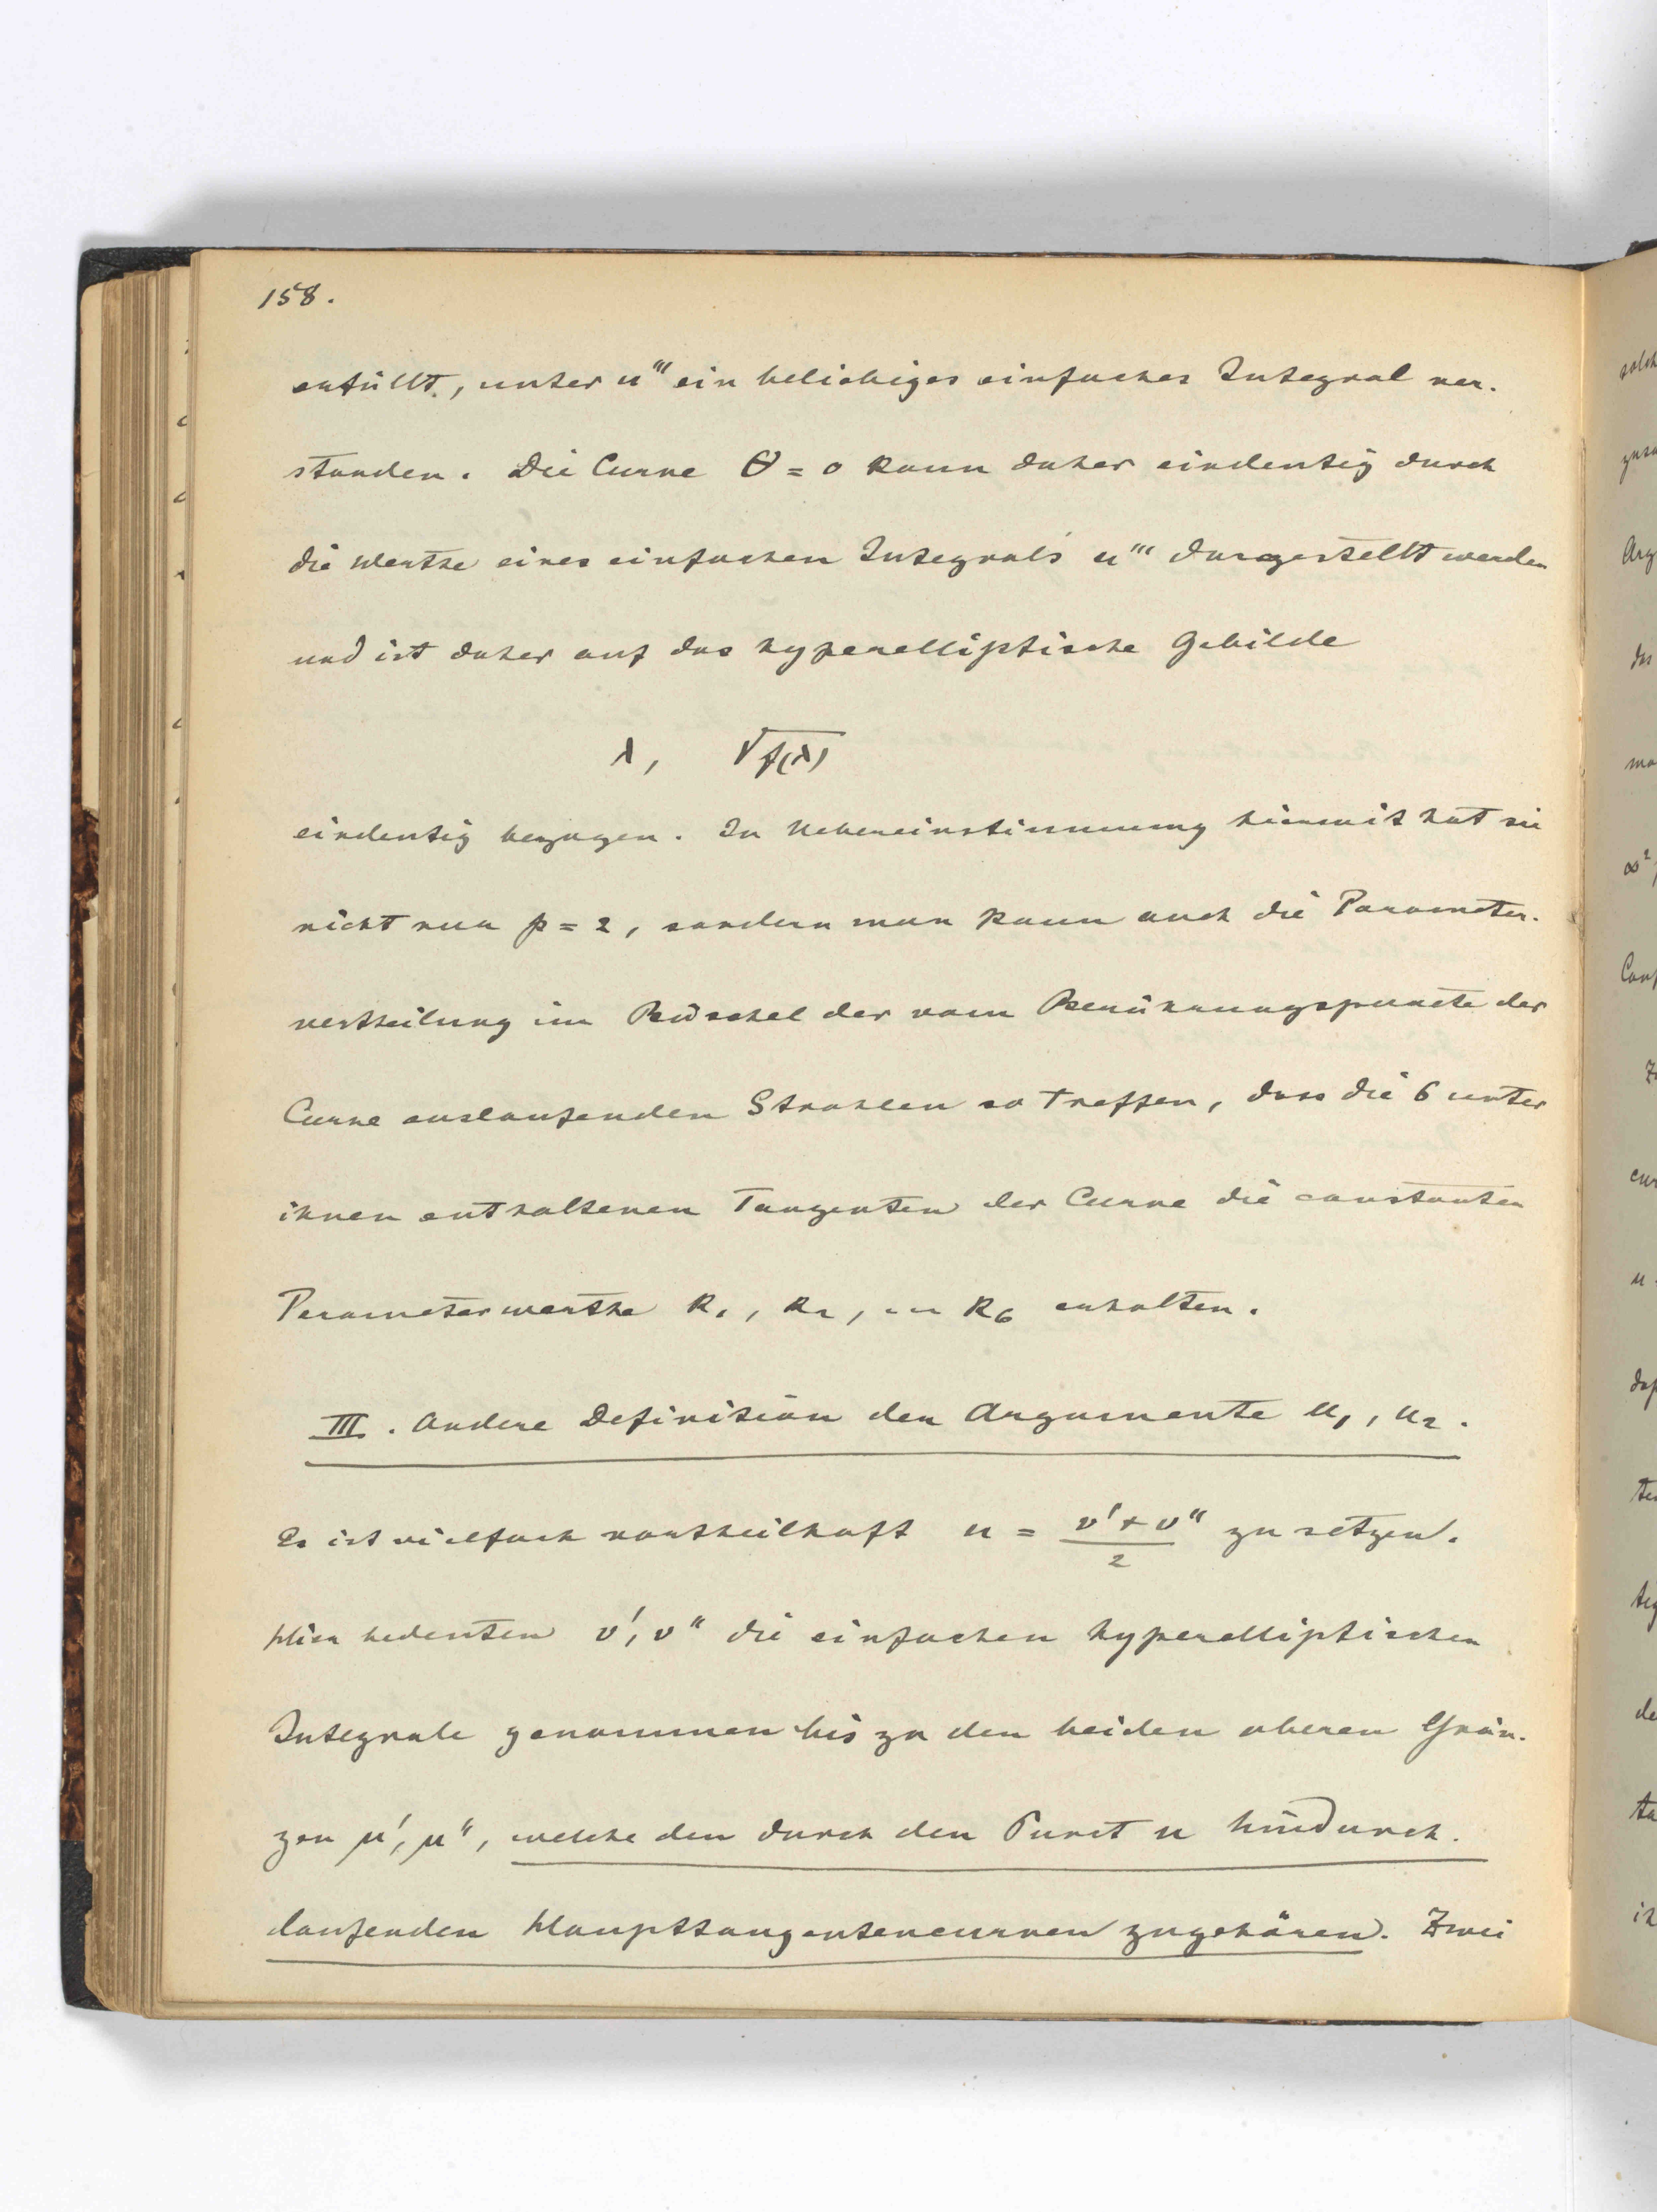 158.
erfüllt, unter u''' ein beliebiges einfaches Integral ver-
standen. Die Curve θ = 0 kann daher eindeutig durch
die Werthe eines einfachen Integrals u''' dargestellt werden
und ist daher auf das hyperelliptische Gebilde
λ, √f(λ)
eindeutig bezogen. In Uebereinstimmung hiermit hat sie
nicht nur p = 2, sondern man kann auch die Parameter-
vertheilung im Büschel der vom Berührungspuncte der
Curve auslaufenden Strahlen so treffen, dass die 6 unter
ihnen enthaltenen Tangenten der Curve die constanten
Parameterwerthe k₁, k₂, ... k₆ erhalten.
III. Andere Definition der Argumente u₁, u₂.
Es ist vielfach vortheilhaft u = (v' + v'')/2 zu setzen.
Hier bedeuten v', v'' die einfachen hyperelliptischen
Integrale genommen bis zu den beiden oberen Grän-
zen μ', μ'', welche den durch den Punct u hindurch-
laufenden Haupttangentencurven zugehören. Zwei